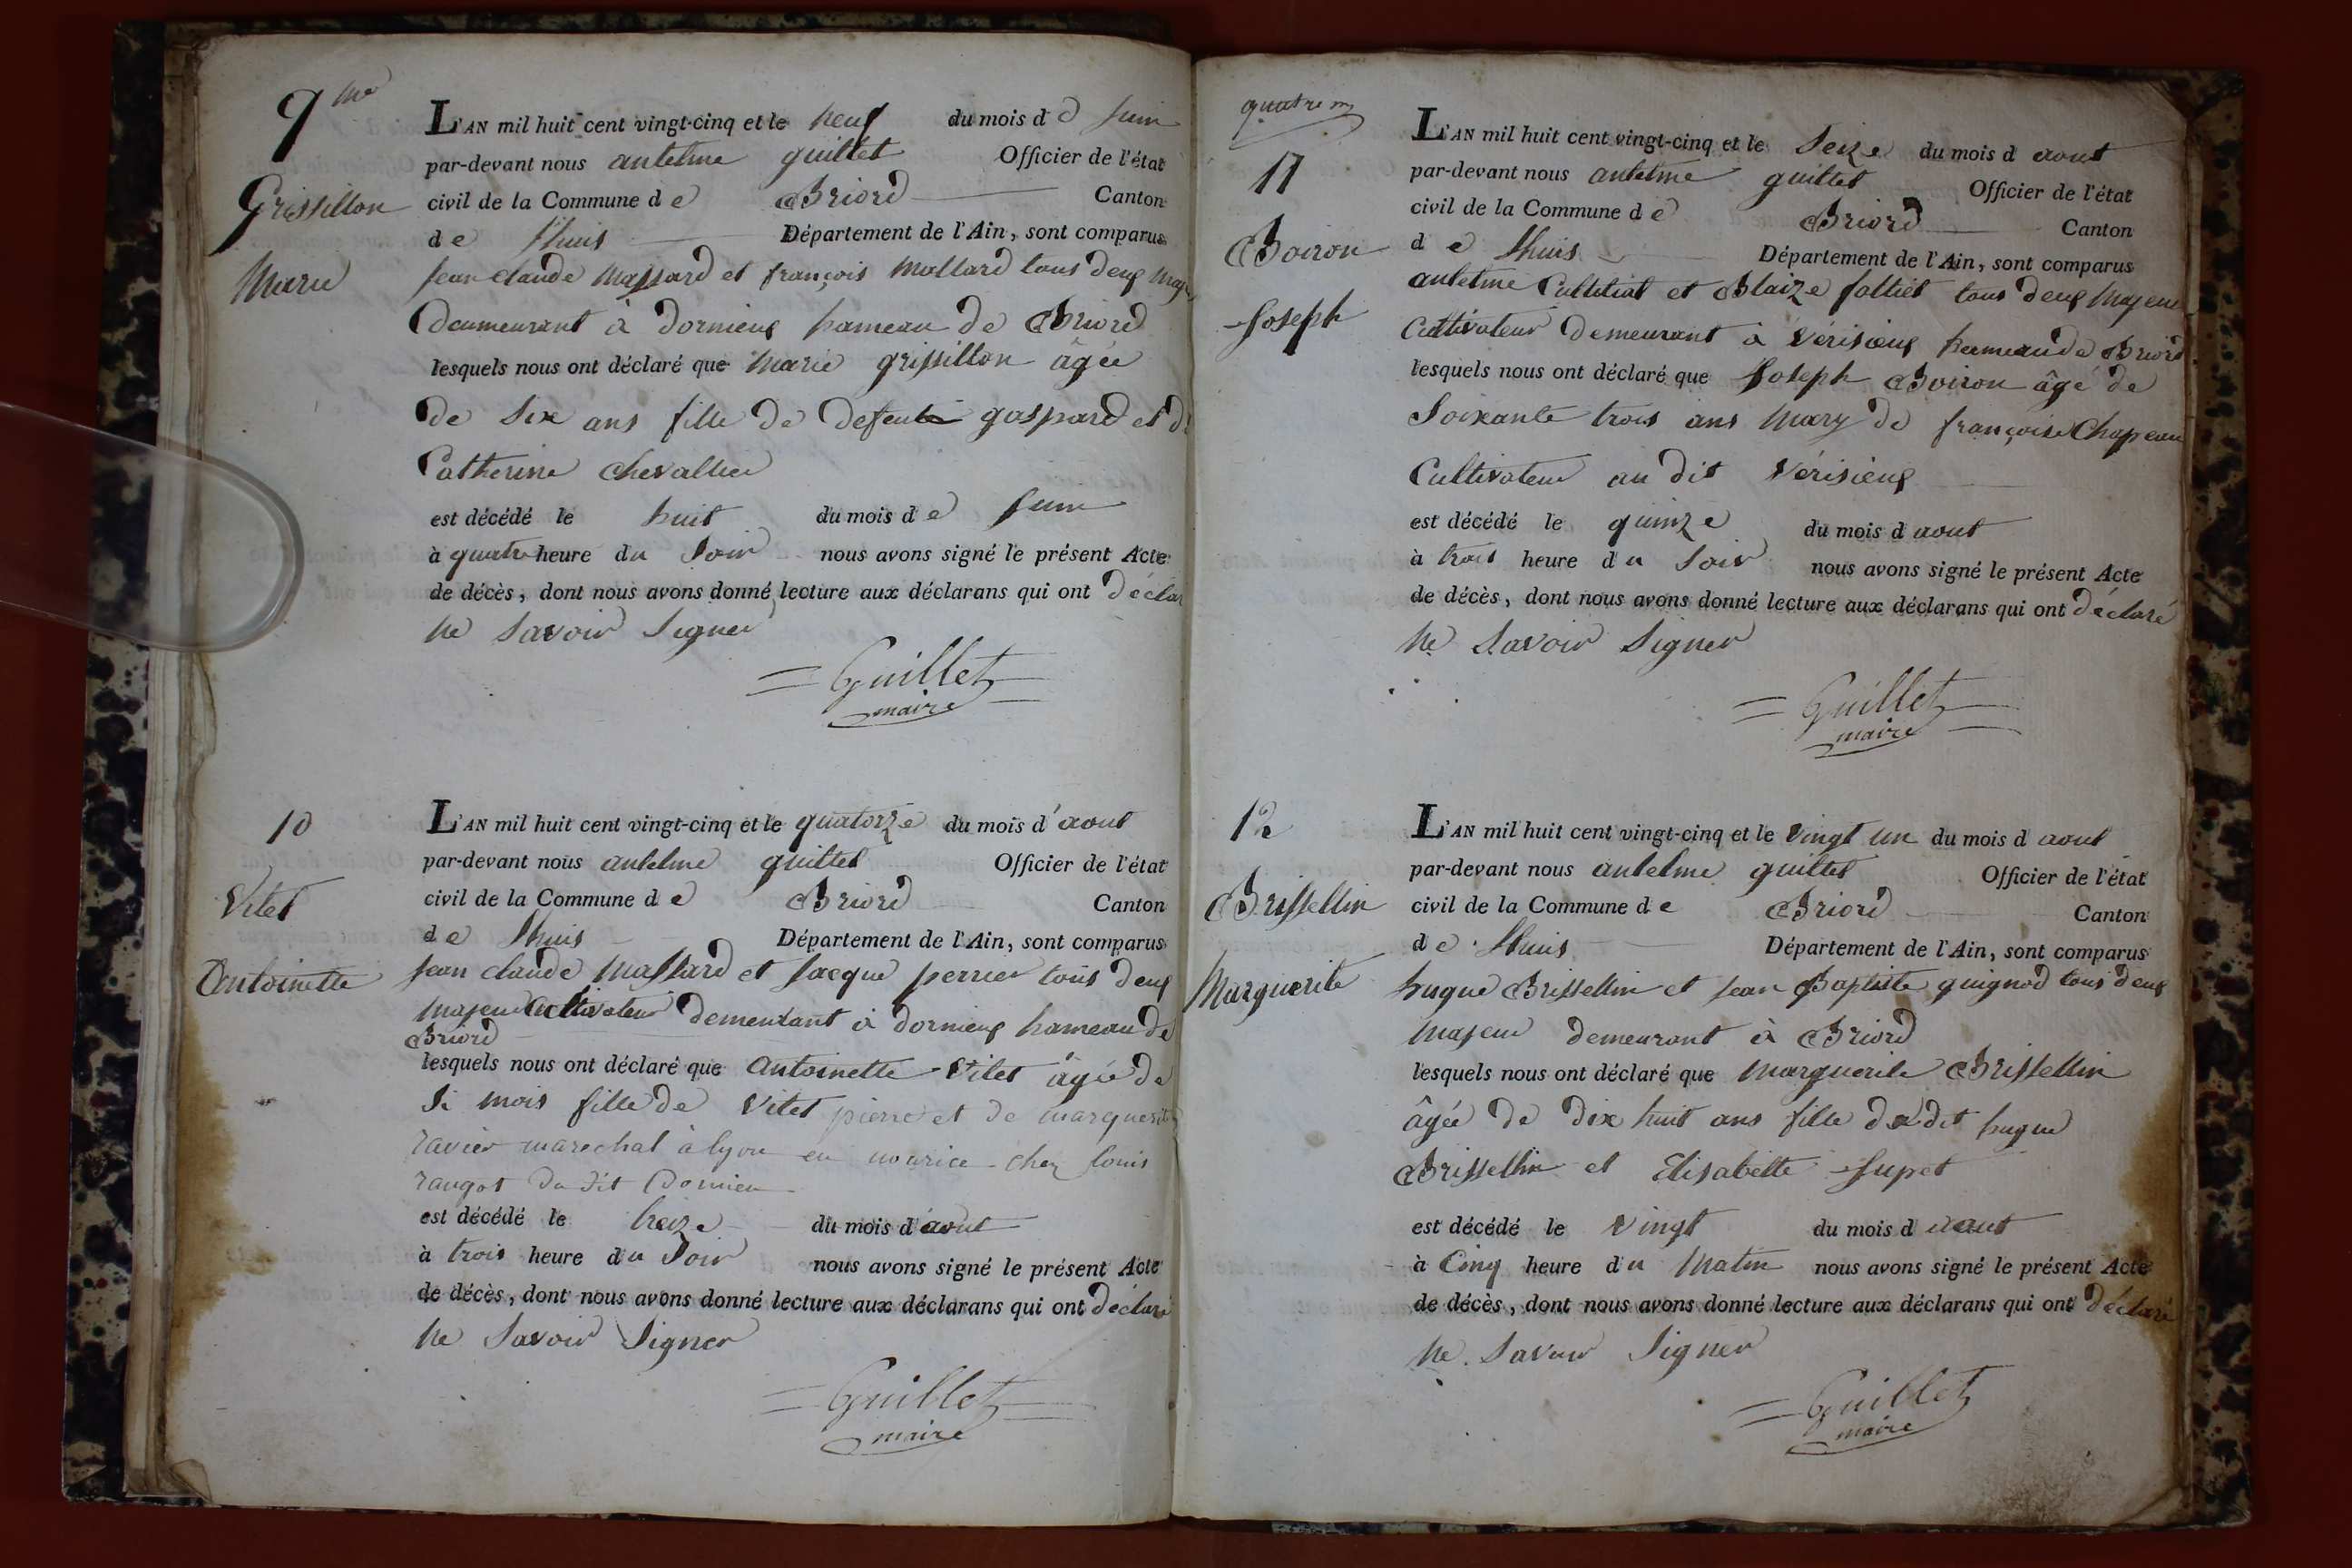 9me
Grissillon
Marie
L'AN mil huit cent vingt-cinq et le neuf du mois d e Juin
par-devant nous antelme guillet Officier de l'état
civil de la Commune d e Briord Canton
d e Lhuis Département de l'Ain, sont comparus
Jean Claude Massard et françois Mollard tous deux maj
demeurant à dornieux hameau de Briord
lesquels nous ont déclaré que Marie grissillon âgée
de Six ans fille de defeut gaspard et de
Catherine Chevallier
est décédé le huit du mois d e Juin
à quatre heure du Soir nous avons signé le présent Acte
de décès, dont nous avons donné lecture aux déclarans qui ont déclar
ne Savoir Signer
Guillet
maire
10
Vitet
Antoinette
L'AN mil huit cent vingt-cinq et le quatorze du mois d'aout
par-devant nous antelme guillet Officier de l'état
civil de la Commune d e Briord Canton
d e Lhuis Département de l'Ain, sont comparus
Jean Claude Massard et Jacque perrier tous deux
majeur Cultivateur demeurant à dornieux hameau de
Briord
lesquels nous ont déclaré que Antoinette Vitet âgée de
Si mois fille de Vitet pierre et de marguerite
ravier marechal à lyon en nourice chez louis
rangot du dit Dornieu
est décédé le treize du mois d'aout
à trois heure du Soir nous avons signé le présent Acte
de décès, dont nous avons donné lecture aux déclarans qui ont déclaré
ne Savoir Signer
Guillet
maire
quatre m
11
Boiron
Joseph
L'AN mil huit cent vingt-cinq et le Seize du mois d aout
par-devant nous antelme guillet Officier de l'état
civil de la Commune d e Briord Canton
d e Lhuis Département de l'Ain, sont comparus
antelme Cullitiat et Blaize folliet tous deux Majeur
Cultivateur demeurant à Vérisieux hameau de Briord
lesquels nous ont déclaré que Joseph Boiron âgé de
Soixante trois ans Mary de françoise Chapeau
Cultivateur au dit Vérisieux
est décédé le quinze du mois d aout
à trois heure du Soir nous avons signé le présent Acte
de décès, dont nous avons donné lecture aux déclarans qui ont déclaré
ne Savoir Signer
Guillet
maire
12
Brissellin
Marguerite
L'AN mil huit cent vingt-cinq et le Vingt un du mois d aout
par-devant nous antelme guillet Officier de l'état
civil de la Commune d e Briord Canton
d e Lhuis Département de l'Ain, sont comparus
hugue Brissellin et Jean Baptiste guignod tous deux
majeur demeurant à Briord
lesquels nous ont déclaré que Marguerite Brissellin
âgée de dix huit ans fille du dit hugue
Brissellin et Elisabette Jupet
est décédé le Vingt du mois d aout
à Cinq heure du Matin nous avons signé le présent Acte
de décès, dont nous avons donné lecture aux déclarans qui ont déclaré
ne Savoir Signer
Guillet
maire